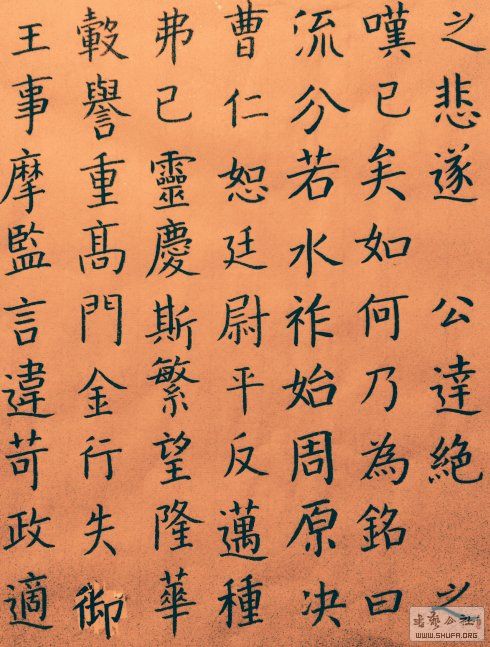 之悲遂 公逹絕 之
嘆已矣如何乃為銘曰
流分若水祚始周原决
曹仁恕廷尉平反邁種
弗已靈慶斯繁望隆華
轂譽重髙門金行失御
王事摩監言違苛政適
WWW.SHUFA.ORG